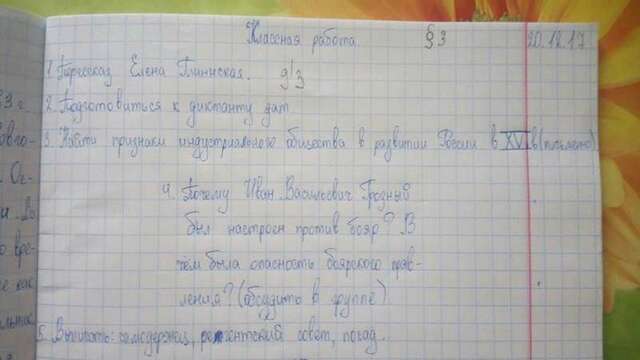 Классная работа § 3 20.12.17
1. Пересказ Елена Глинская. 9/3
2. Подготовиться к диктанту дат
3. Найти признаки индустриального общества в развитии России в XVI в (письменно)
4. Почему Иван Васильевич Грозный
был настроен против бояр? В
чём была опасность боярского прав-
ления? (обсудить в группе)
5. Выписать: самодержец, регентский совет, посад.